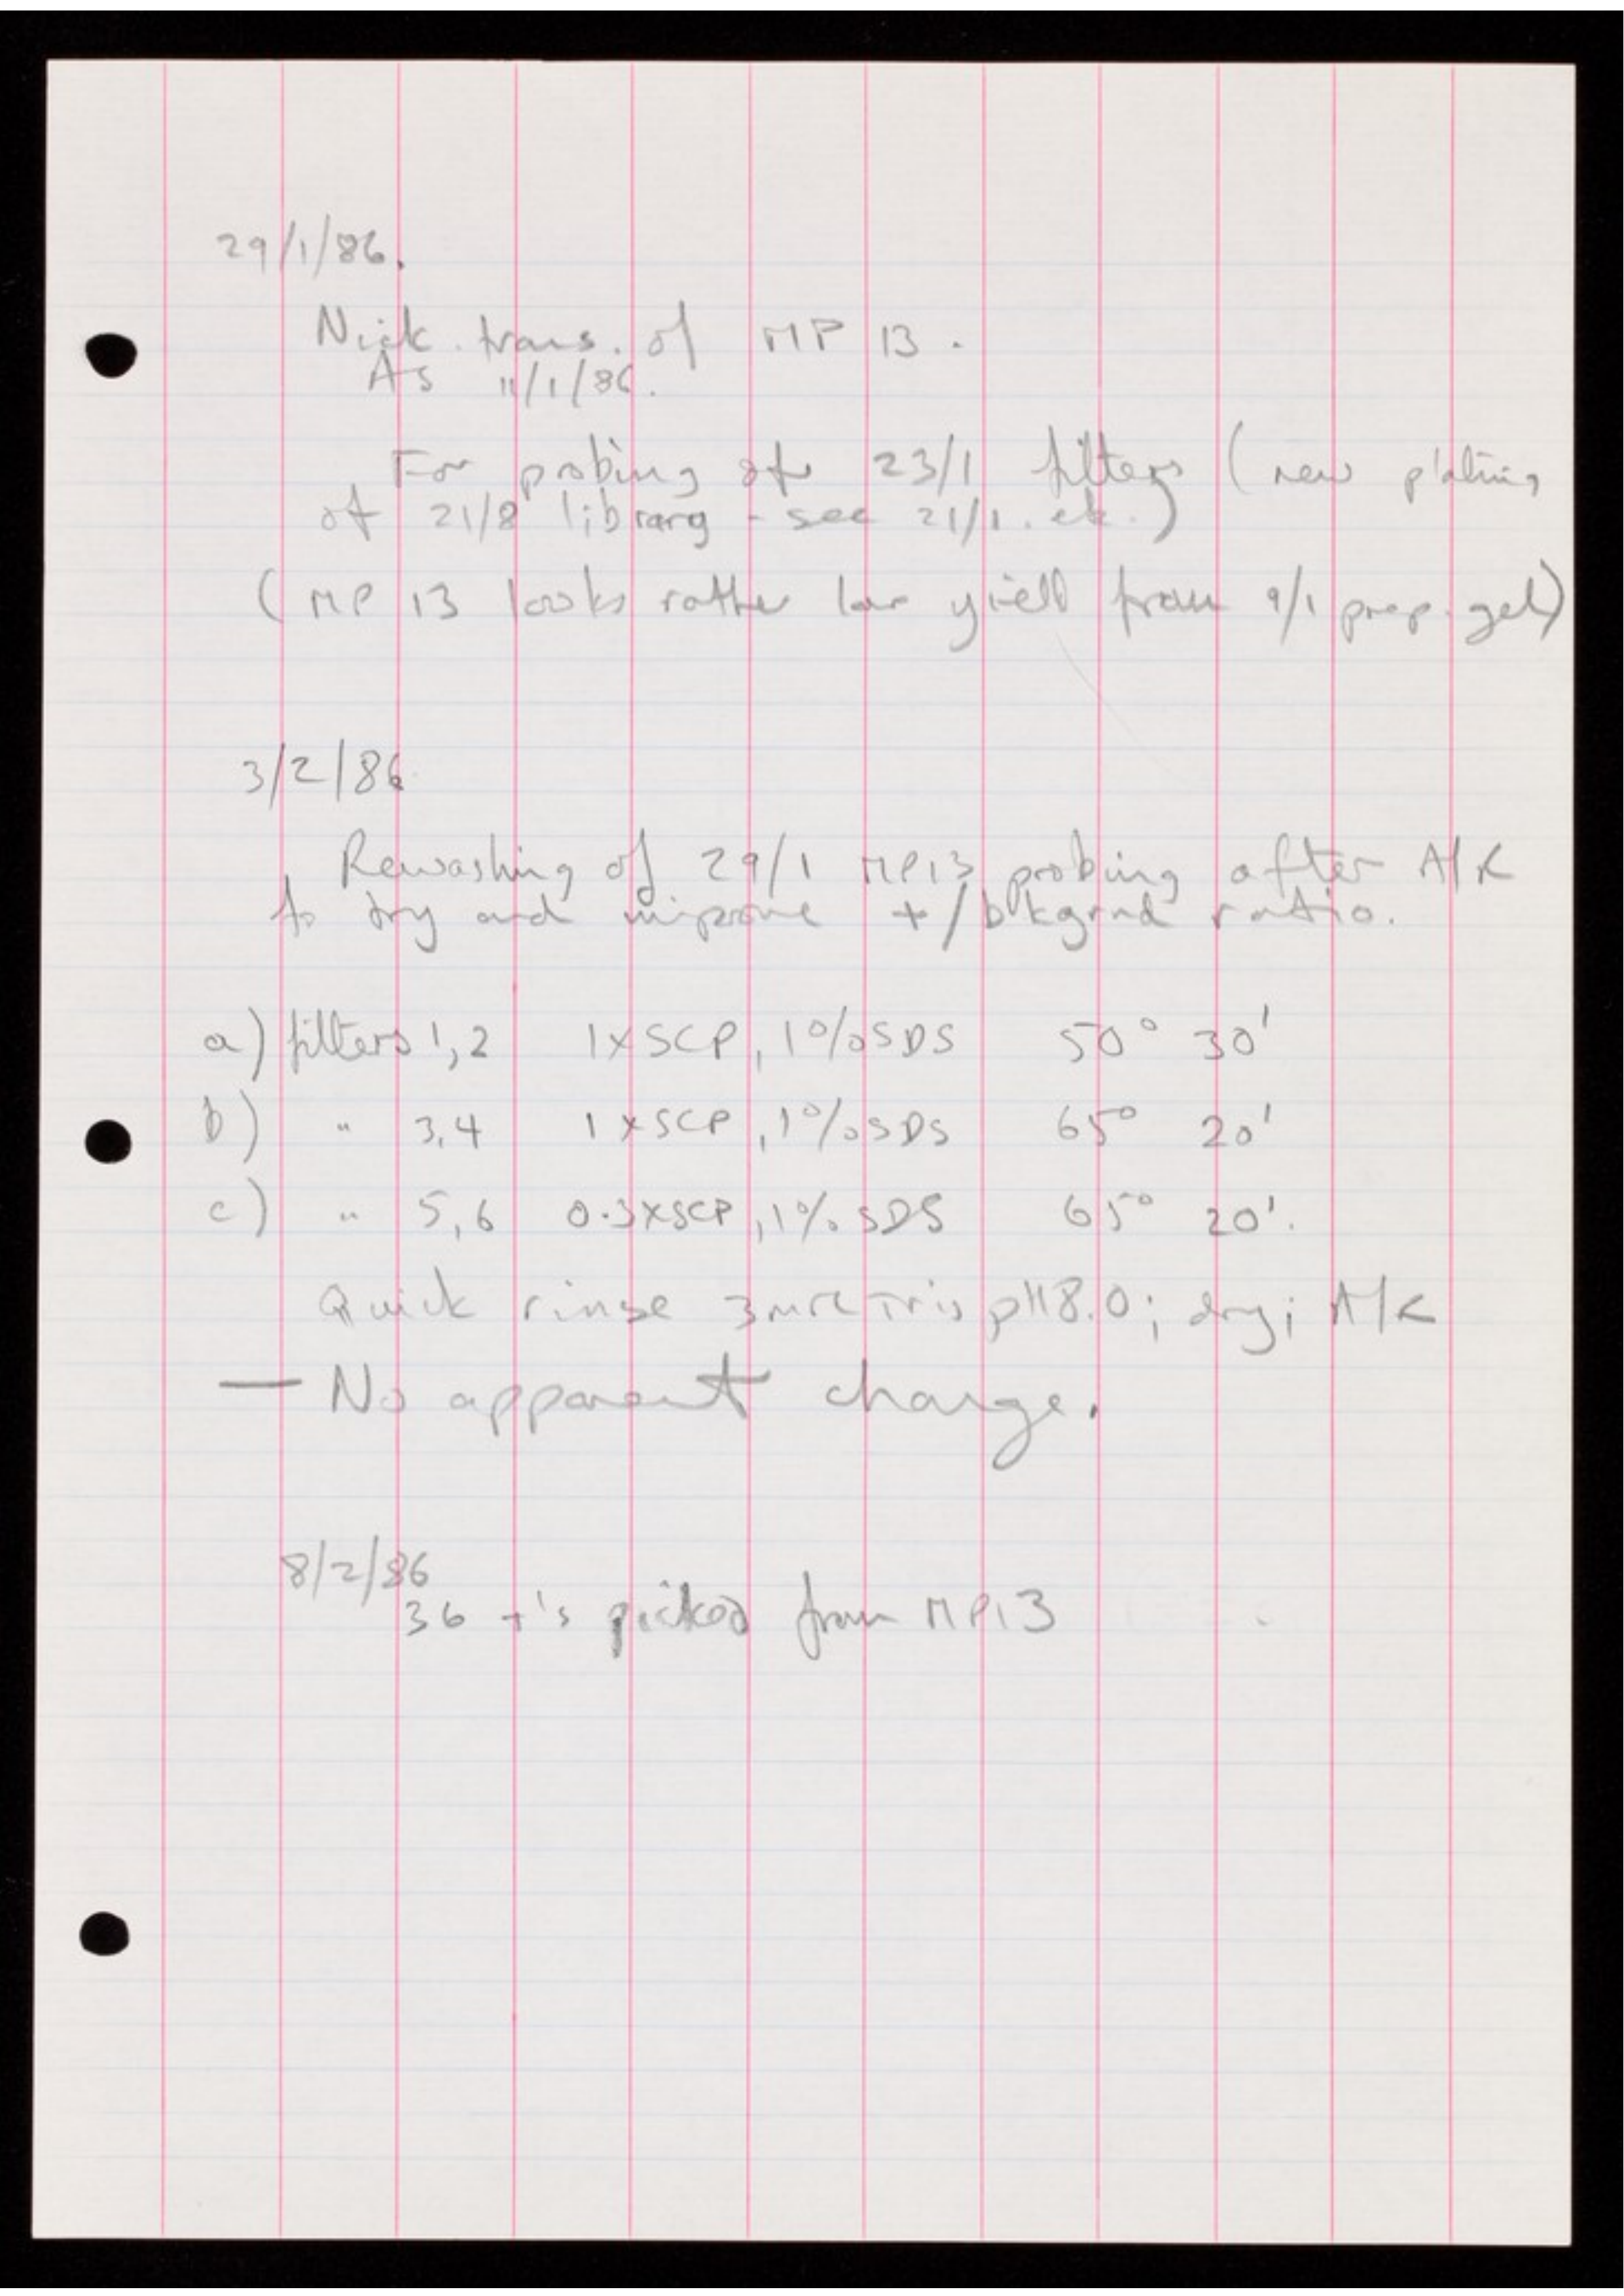 29/1/86.
Nick. trans. of MP 13.
As 11/1/86.
For probing of 23/1 filters (new plating
of 21/8 library - see 21/1. etc.)
(MP 13 looks rather low yield from 9/1 prep. gel)
3/2/86
Rewashing of 29/1 MP13 probing after A/R
to try and improve +/bkgrnd ratio.
a) filters 1,2 1xSCP, 1%SDS 50° 30'
b) " 3,4 1xSCP, 1%SDS 65° 20'
c) " 5,6 0.3xSCP, 1% SDS 65° 20'.
Quick rinse 3mM Tris pH8.0; dry; A/R
— No apparent change.
8/2/86
36 +'s picked from MP13